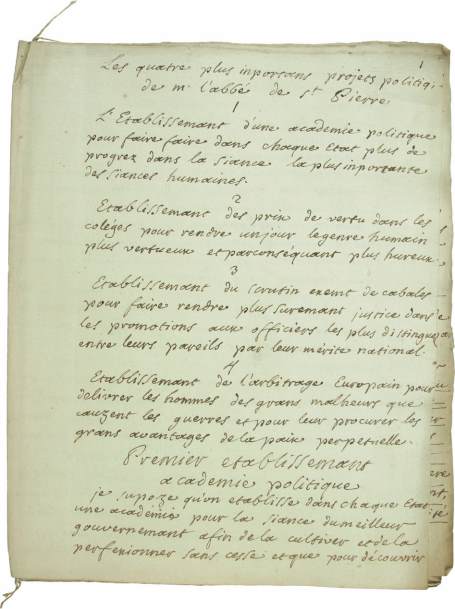 1
Les quatre plus inportans projets politiq
de mr l'abbé de St Pierre
1
L'Etablissemant d'une academie politique
pour faire faire dans chaque Etat plus de
progrez dans la siance la plus inportante
des siances humaines.
2
Etablissemant des prix de vertu dans les
coléges pour rendre un jour le genre humain
plus vertueux et par conséquant plus hureux.
3
Etablissemant du scrutin exemt de cabales
pour faire rendre plus suremant justice dans
les promotions aux officiers les plus distinguez
entre leurs pareils par leur mérite national.
4
Etablissemant de l'arbitrage Europain pour
delivrer les hommes des grans malheurs que
cauzent les guerres et pour leur procurer les
grans avantages de la paix perpetuelle.
Premier etablissemant
academie politique
je supoze qu'on etablisse dans chaque Etat
une academie pour la siance du meilleur
gouvernemant afin de la cultiver et de la
perfexionner sans cesse et que pour découvrir